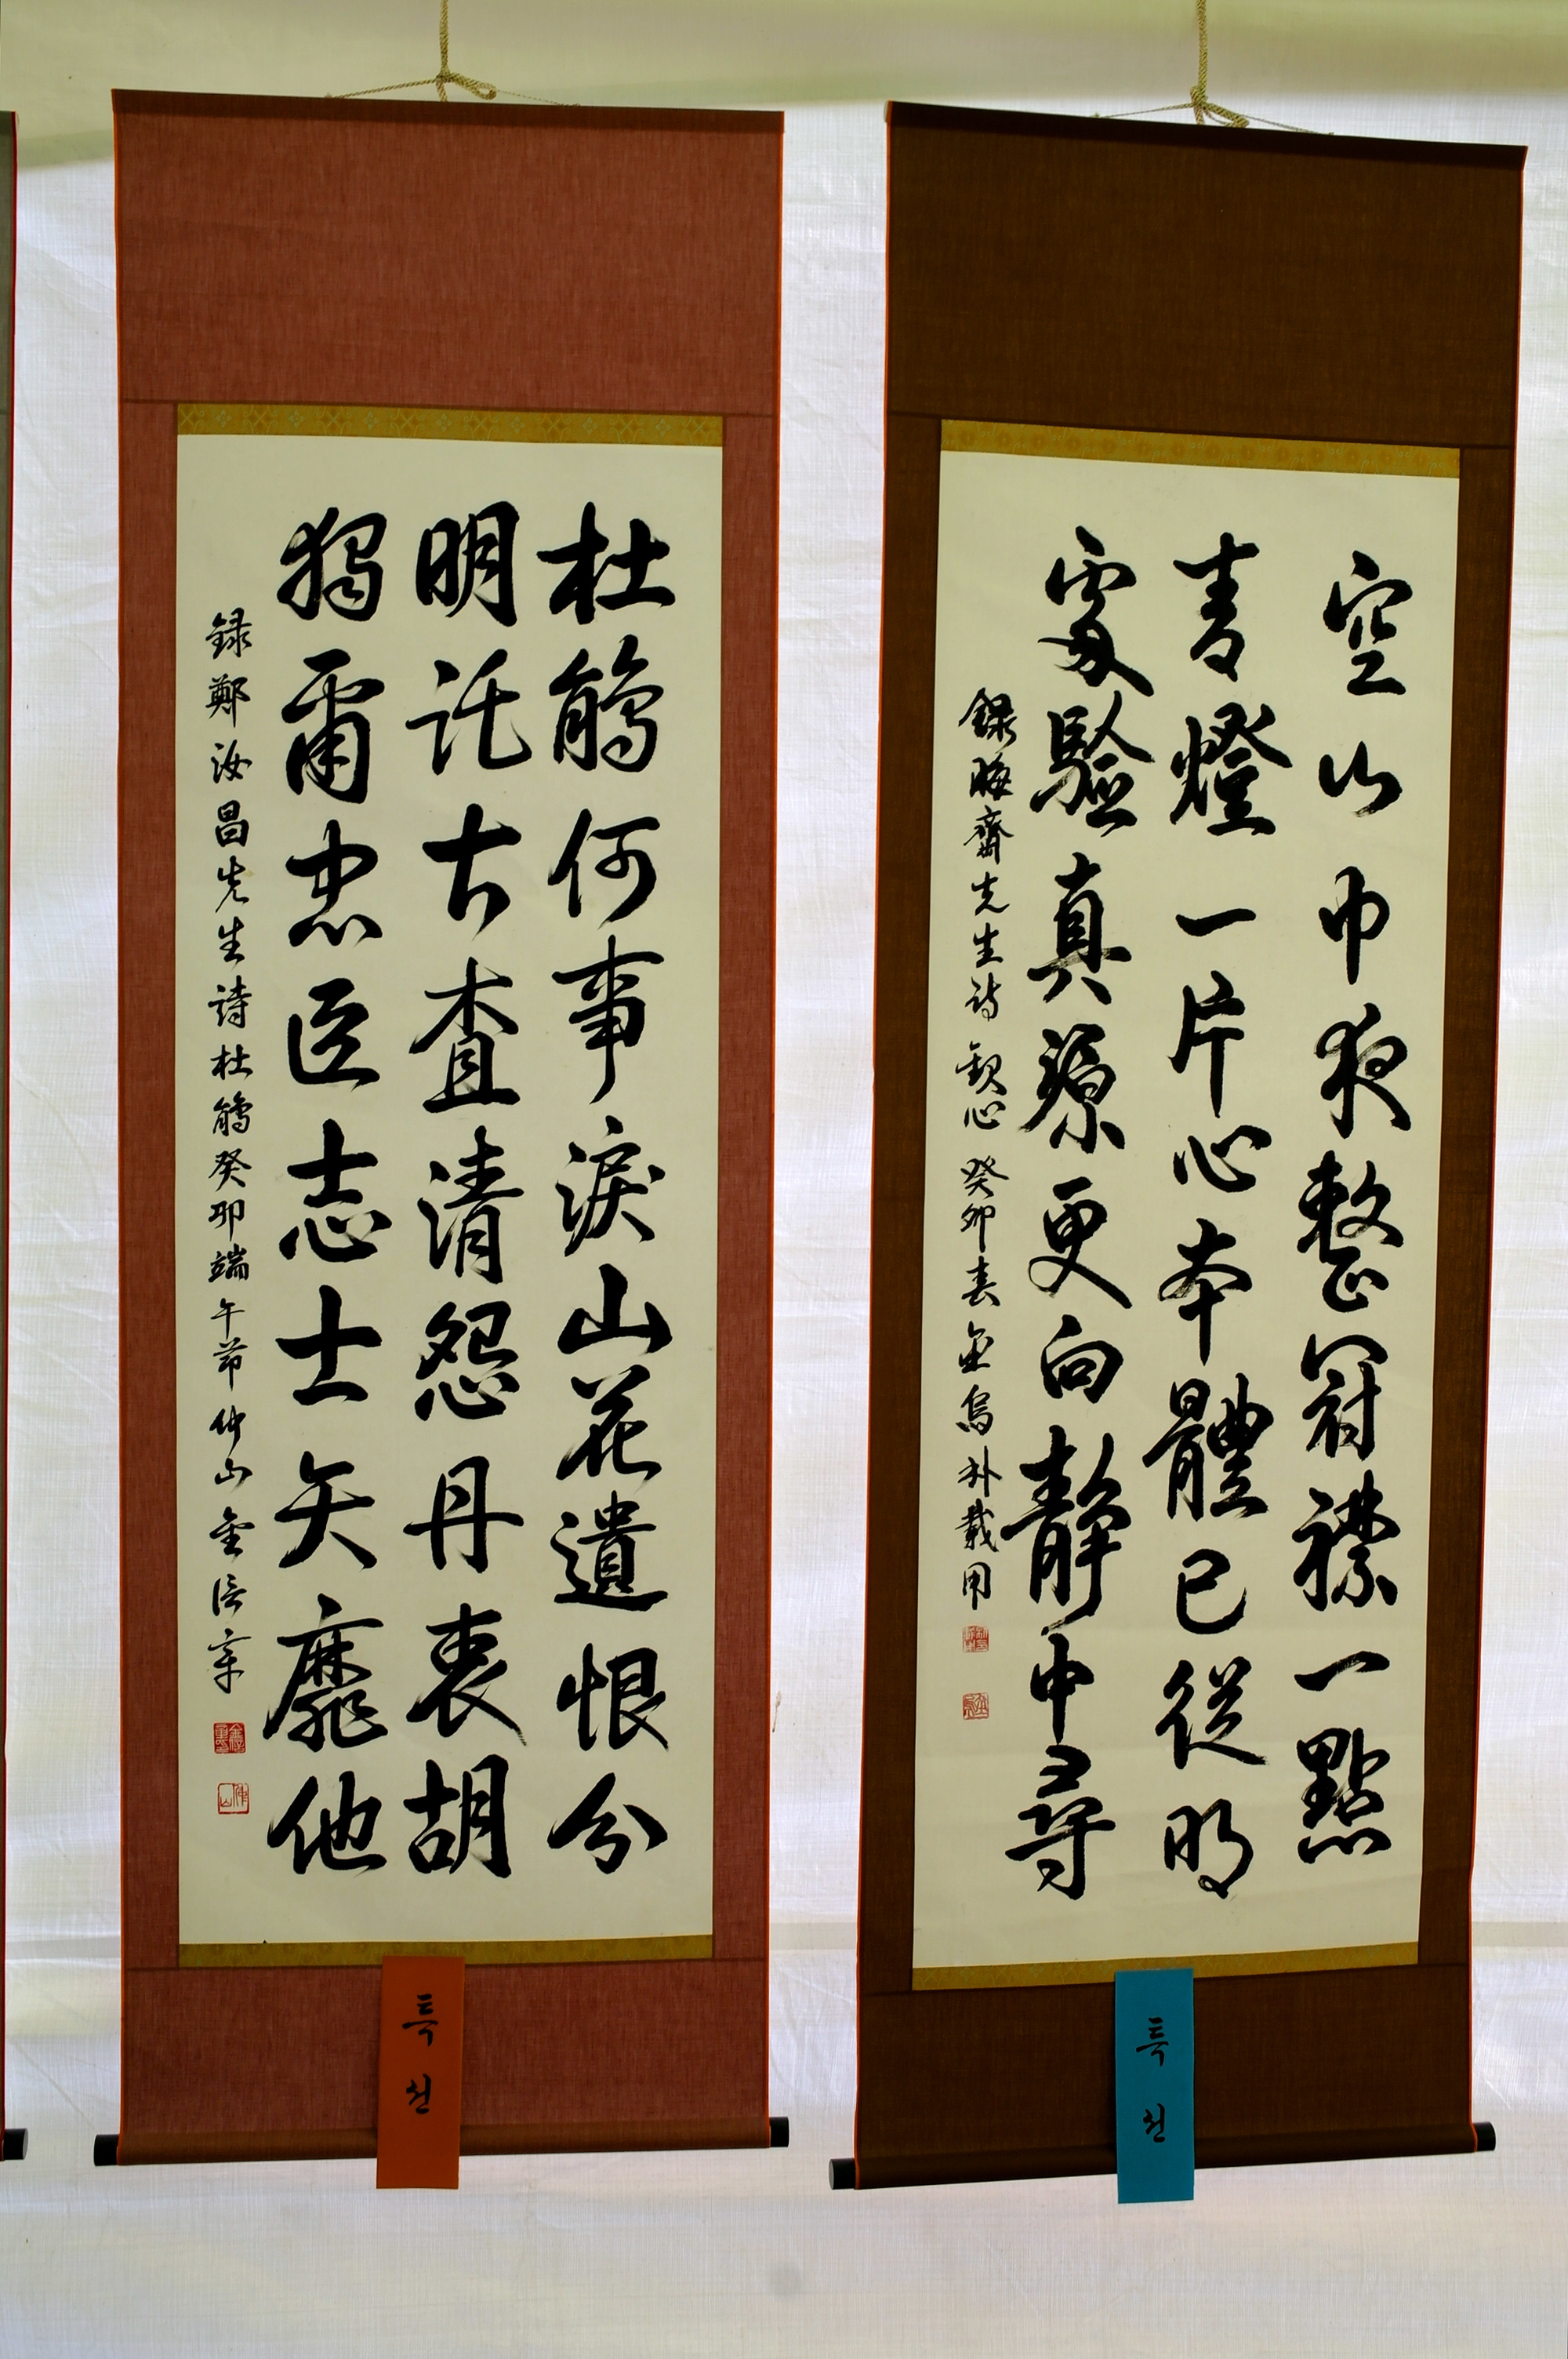 空山中夜整冠襟一點
青燈一片心本體已從明
處驗真源更向靜中尋
錄晦齋先生詩 觀心 癸卯春 金烏 朴載用
특선
杜鵑何事淚山花遺恨分
明託古査清怨丹衷胡
獨爾忠臣志士矢靡他
錄鄭汝昌先生詩杜鵑癸卯端午節仲山金
특선